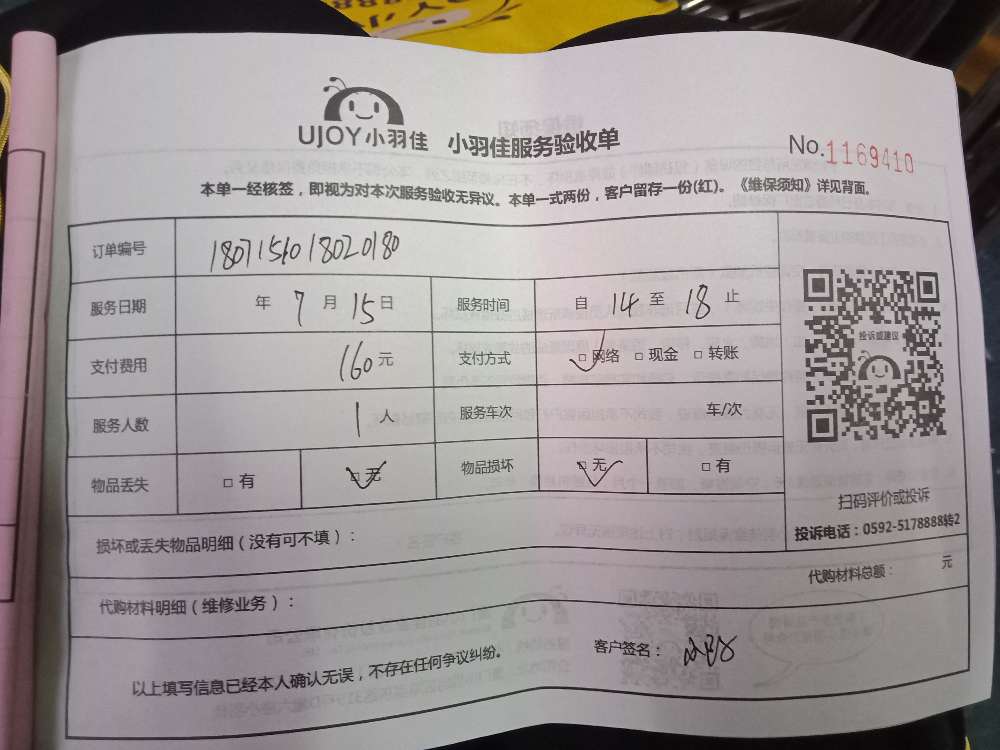 UJOY小羽佳 小羽佳服务验收单
No.1169410
本单一经核签，即视为对本次服务验收无异议。本单一式两份，客户留存一份(红)。《维保须知》详见背面。
订单编号 1807156018020180
服务日期 年 7 月 15 日 服务时间 自 14 至 18 止
支付费用 160 元 支付方式 □网络 □现金 □转账
服务人数 1 人 服务车次 车/次
物品丢失 □有 □无 物品损坏 □无 □有
投诉或建议
扫码评价或投诉
投诉电话：0592-5178888转2
损坏或丢失物品明细（没有可不填）：
代购材料明细（维修业务）： 代购材料总额： 元
以上填写信息已经本人确认无误，不存在任何争议纠纷。 客户签名：